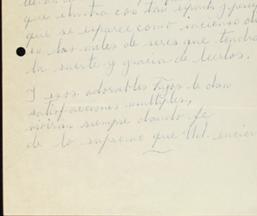 que emana con tan
que se esparce como incienso de
a los miles de seres que tendrán
la suerte y gracia de leerlos.
Y esos adorables hijos le dan
satisfacciones múltiples,
vivirán siempre dando fe
de lo supremo que Ud. encier